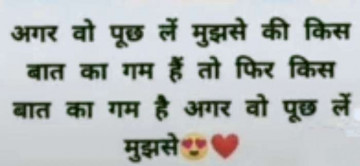 अगर वो पूछ लें मुझसे की किस
बात का गम हैं तो फिर किस
बात का गम है अगर वो पूछ लें
मुझसे😍❤️